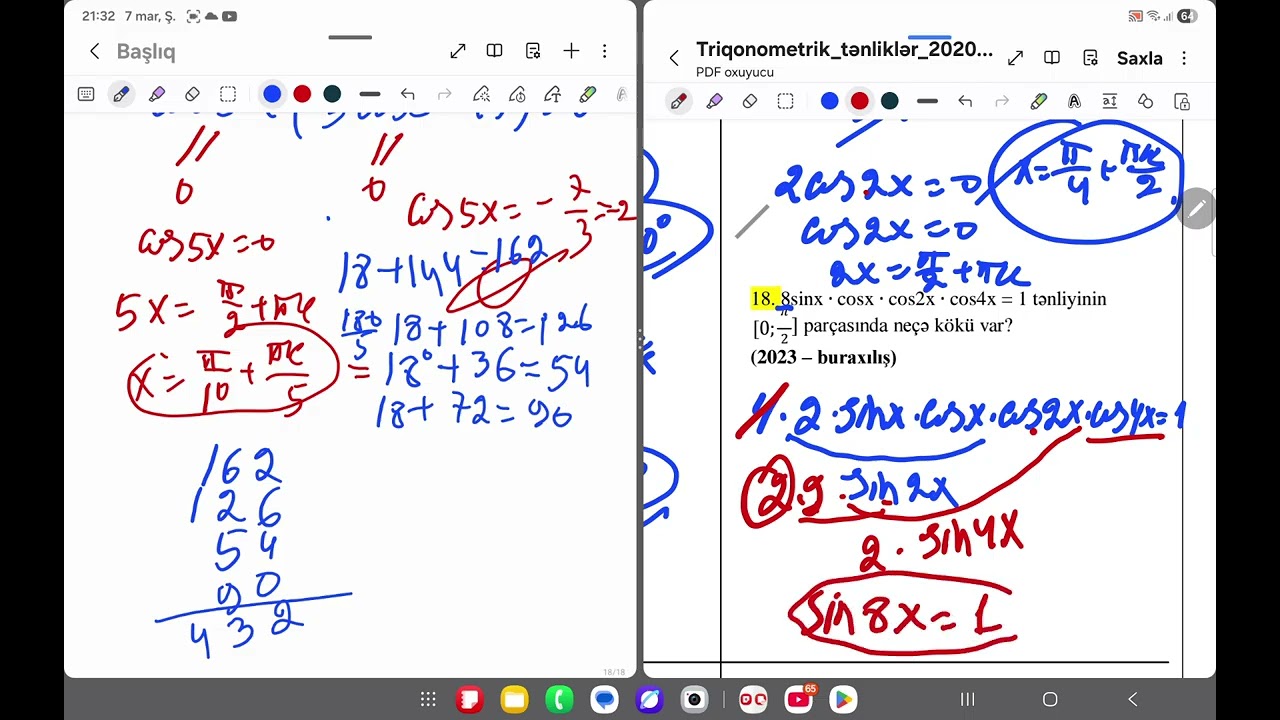 21:32 7 mar, Ş.
Başlıq
0 0
cos5x=0
cos5x= - 7/3=-2
5x= π/2+πk
x= π/10 + πk/5 =
18+144=162
180/5
18+108=126
18°+36=54
18+72=90
162
126
54
90
432
64
Triqonometrik_tənliklər_2020...
PDF oxuyucu
Saxla
2cos2x=0
x=π/4+πk/2
cos2x=0
2x=π/2+πk
18. 8sinx · cosx · cos2x · cos4x = 1 tənliyinin
[0; π/2] parçasında neçə kökü var?
(2023 – buraxılış)
4·2·sinx·cosx·cos2x·cos4x=1
2·2·sin2x
2·sin4x
sin8x=1
18/18
65